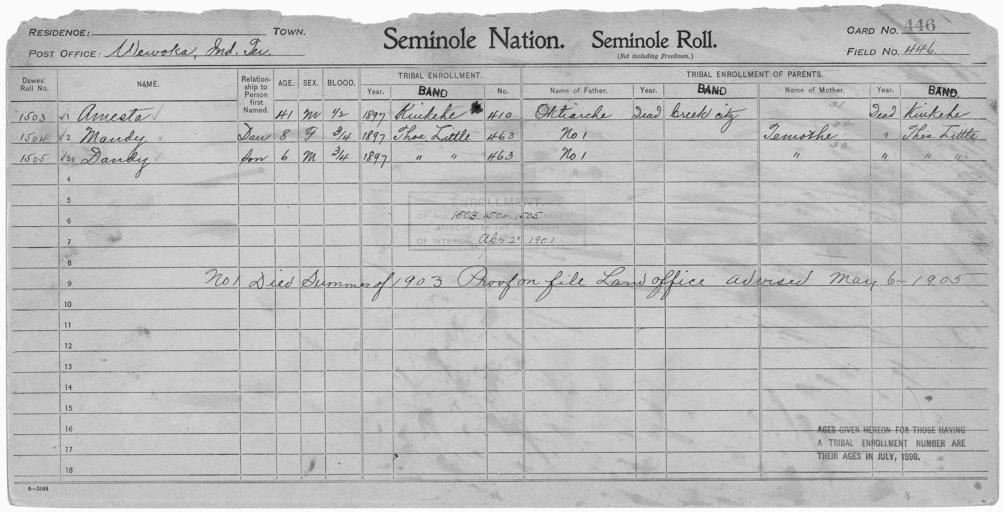 RESIDENCE: TOWN. Seminole Nation. Seminole Roll. CARD NO. 446
POST OFFICE: Wewoka, Ind. Ter. (Not including Freedmen.) FIELD NO. 446
Dawes' Roll No. NAME. Relationship to Person first Named. AGE. SEX. BLOOD. TRIBAL ENROLLMENT. TRIBAL ENROLLMENT OF PARENTS.
Year. BAND No. Name of Father. Year. BAND Name of Mother. Year. BAND.
1503 √1 Amesta 41 M 1/2 1897 Kinkehe 410 Oktiarche Dead Creek city 31 Dead Kinkehe
1504 √2 Mandy Dau 8 F 3/4 1897 Thos. Little 463 No 1 Temothe " Thos. Little
1505 √3 Dandy Son 6 M 3/4 1897 " " 463 No 1 " " " "
4
5
ENROLLMENT
6 1503 1504 1505
APPROVED BY THE SECRETARY
7 OF INTERIOR Apr 2" 1901
8
9 No 1 Died Summer of 1903 Proof on file Land office advised May 6-1905
10
11
12
13
14
15
16 AGES GIVEN HEREON FOR THOSE HAVING
A TRIBAL ENROLLMENT NUMBER ARE
17 THEIR AGES IN JULY, 1898.
18